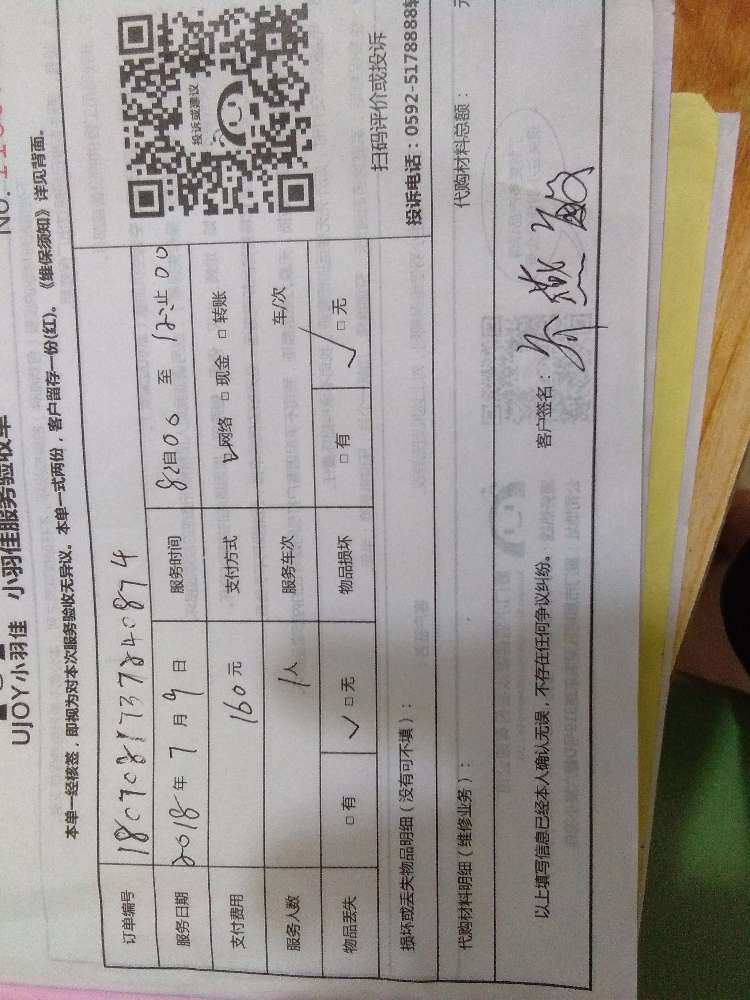 UJOY小羽佳 小羽佳服务验收单
No.
本单一经核签，即视为对本次服务验收无异议。本单一式两份，客户留存一份(红)。《维保须知》详见背面。
订单编号 1807081737840874
服务日期 2018年7月9日 服务时间 至 止
支付费用 160元 支付方式 网络 □现金 □转账
服务人数 1人 服务车次 车/次
物品丢失 □有 ✓□无 物品损坏 □有 ✓□无
投诉或建议
扫码评价或投诉
投诉电话：0592-5178888
损坏或丢失物品明细（没有可不填）：
代购材料明细（维修业务）： 代购材料总额： 元
以上填写信息已经本人确认无误，不存在任何争议纠纷。 客户签名：